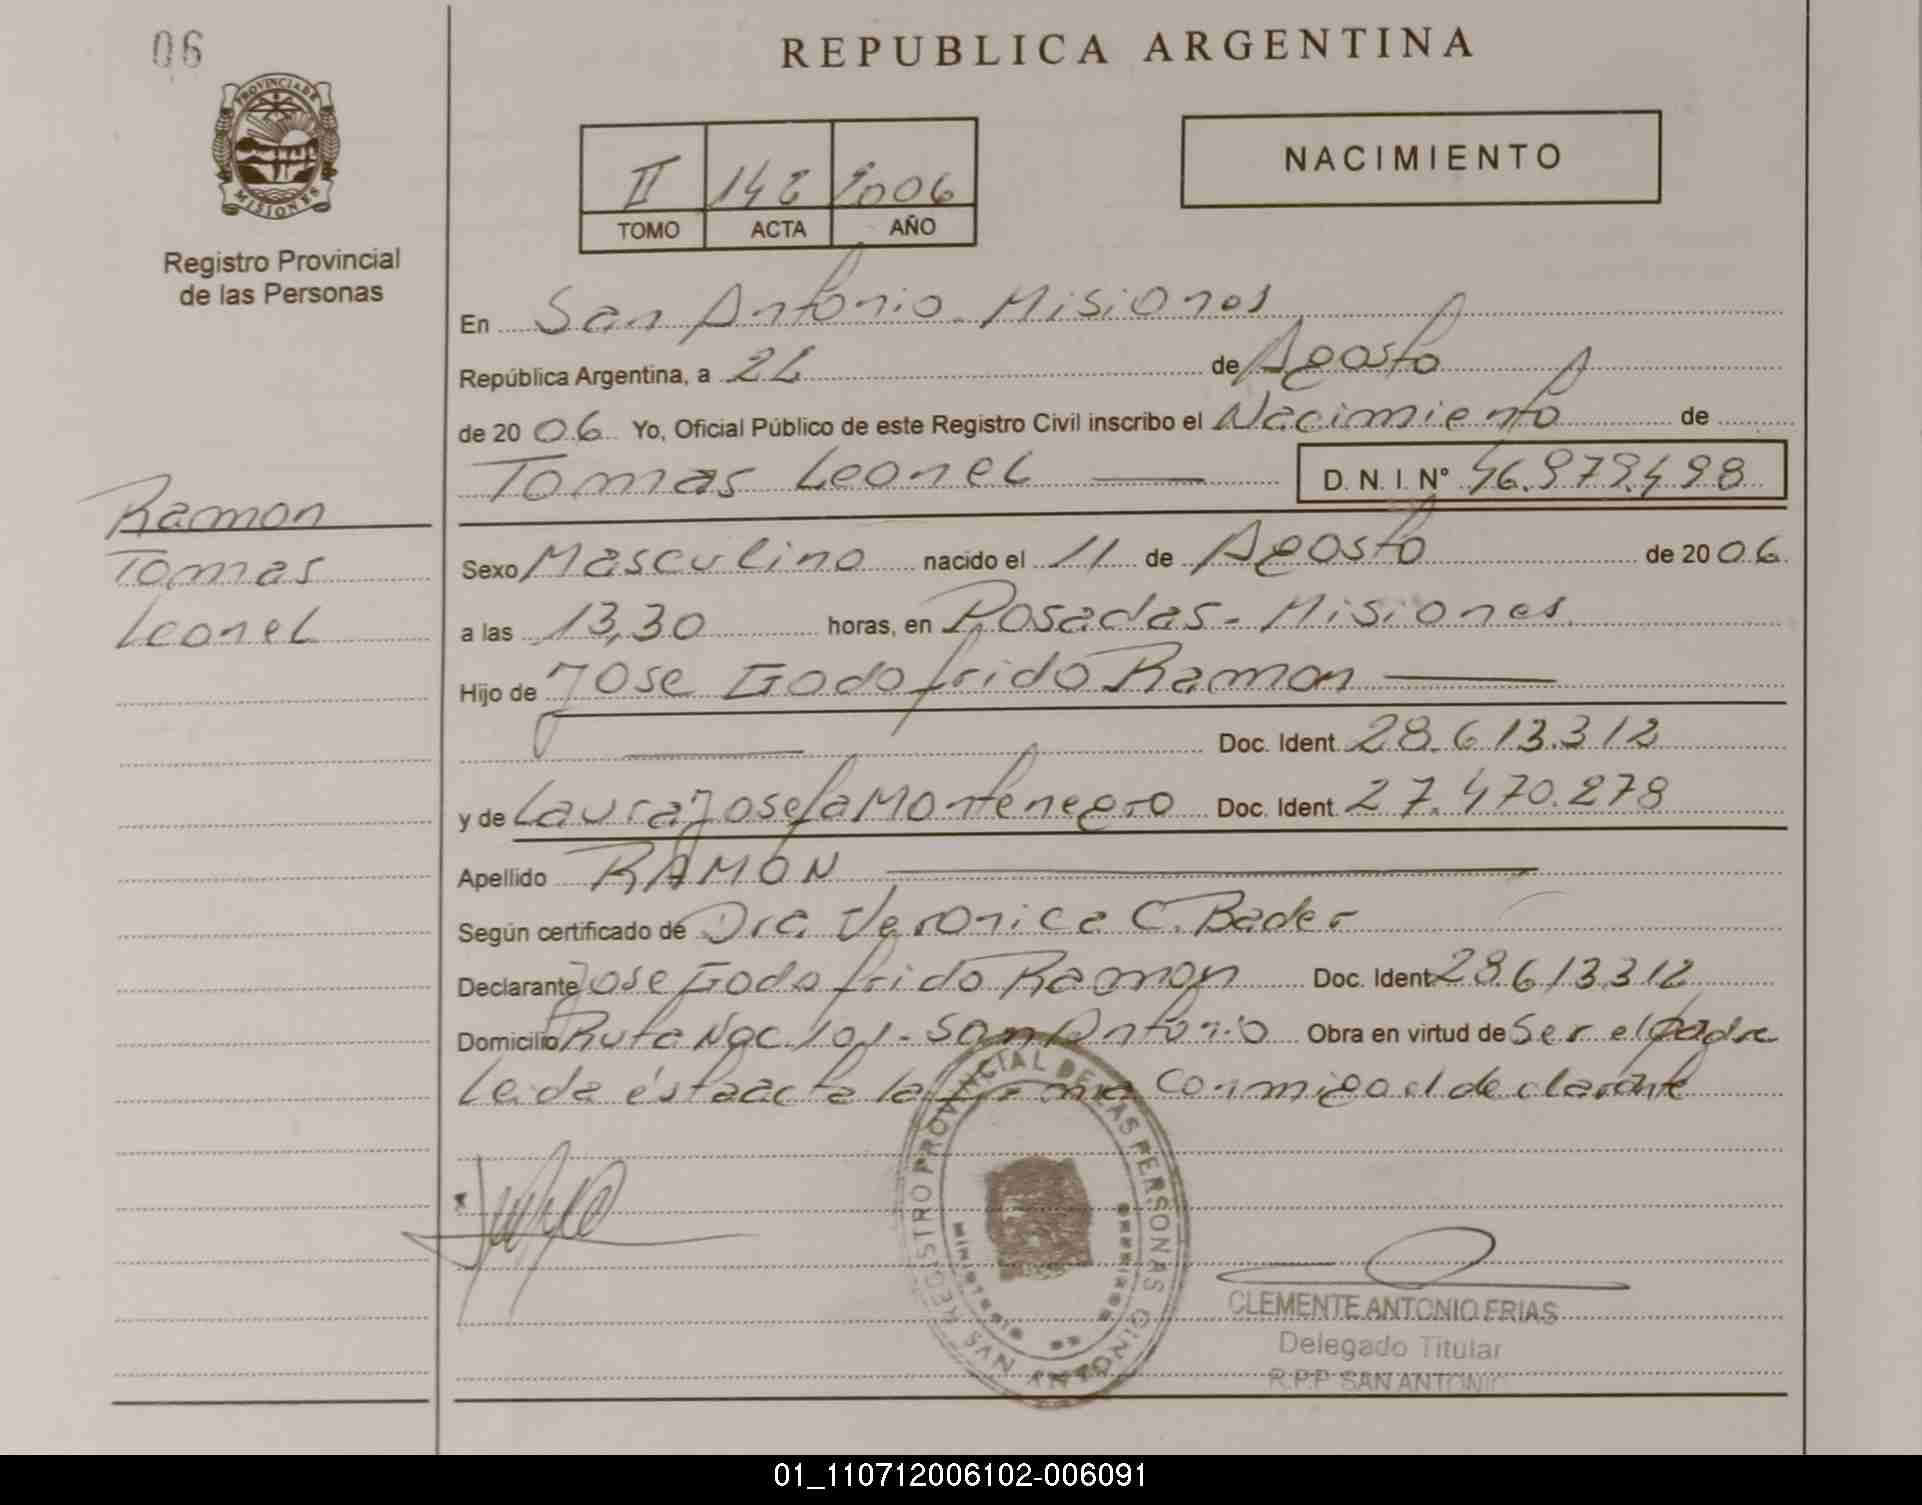 06
REPUBLICA ARGENTINA
PROVINCIA DE
MISIONES
Registro Provincial
de las Personas
II 2006
TOMO ACTA AÑO
NACIMIENTO
En San Antonio - Misiones
República Argentina, a de Agosto
de 20 06 Yo, Oficial Público de este Registro Civil inscribo el Nacimiento de
Tomas Leonel D. N. I. Nº 46.979.498
Ramon
Tomas
Leonel
Sexo Masculino nacido el 11 de Agosto de 20 06
a las 13,30 horas, en Posadas - Misiones
Hijo de Jose Godofrido Ramon
Doc. Ident. 28.613.312
y de Laura Josefa Montenegro Doc. Ident. 27.470.278
Apellido RAMON
Según certificado de Dra. Veronica C. Bader
Declarante Jose Godofrido Ramon Doc. Ident. 28.613.312
Domicilio Ruta Nac. 101 - San Antonio Obra en virtud de Ser el padre
Leida ésta acta la firma conmigo el declarante
REGISTRO PROVINCIAL DE LAS PERSONAS
MINISTERIO DE GOBIERNO
SAN ANTONIO
CLEMENTE ANTONIO FRIAS
Delegado Titular
R.P.P SAN ANTONIO
01_110712006102-006091